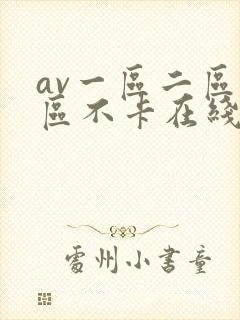 av一區二區
區不卡在綫
霙州小書童